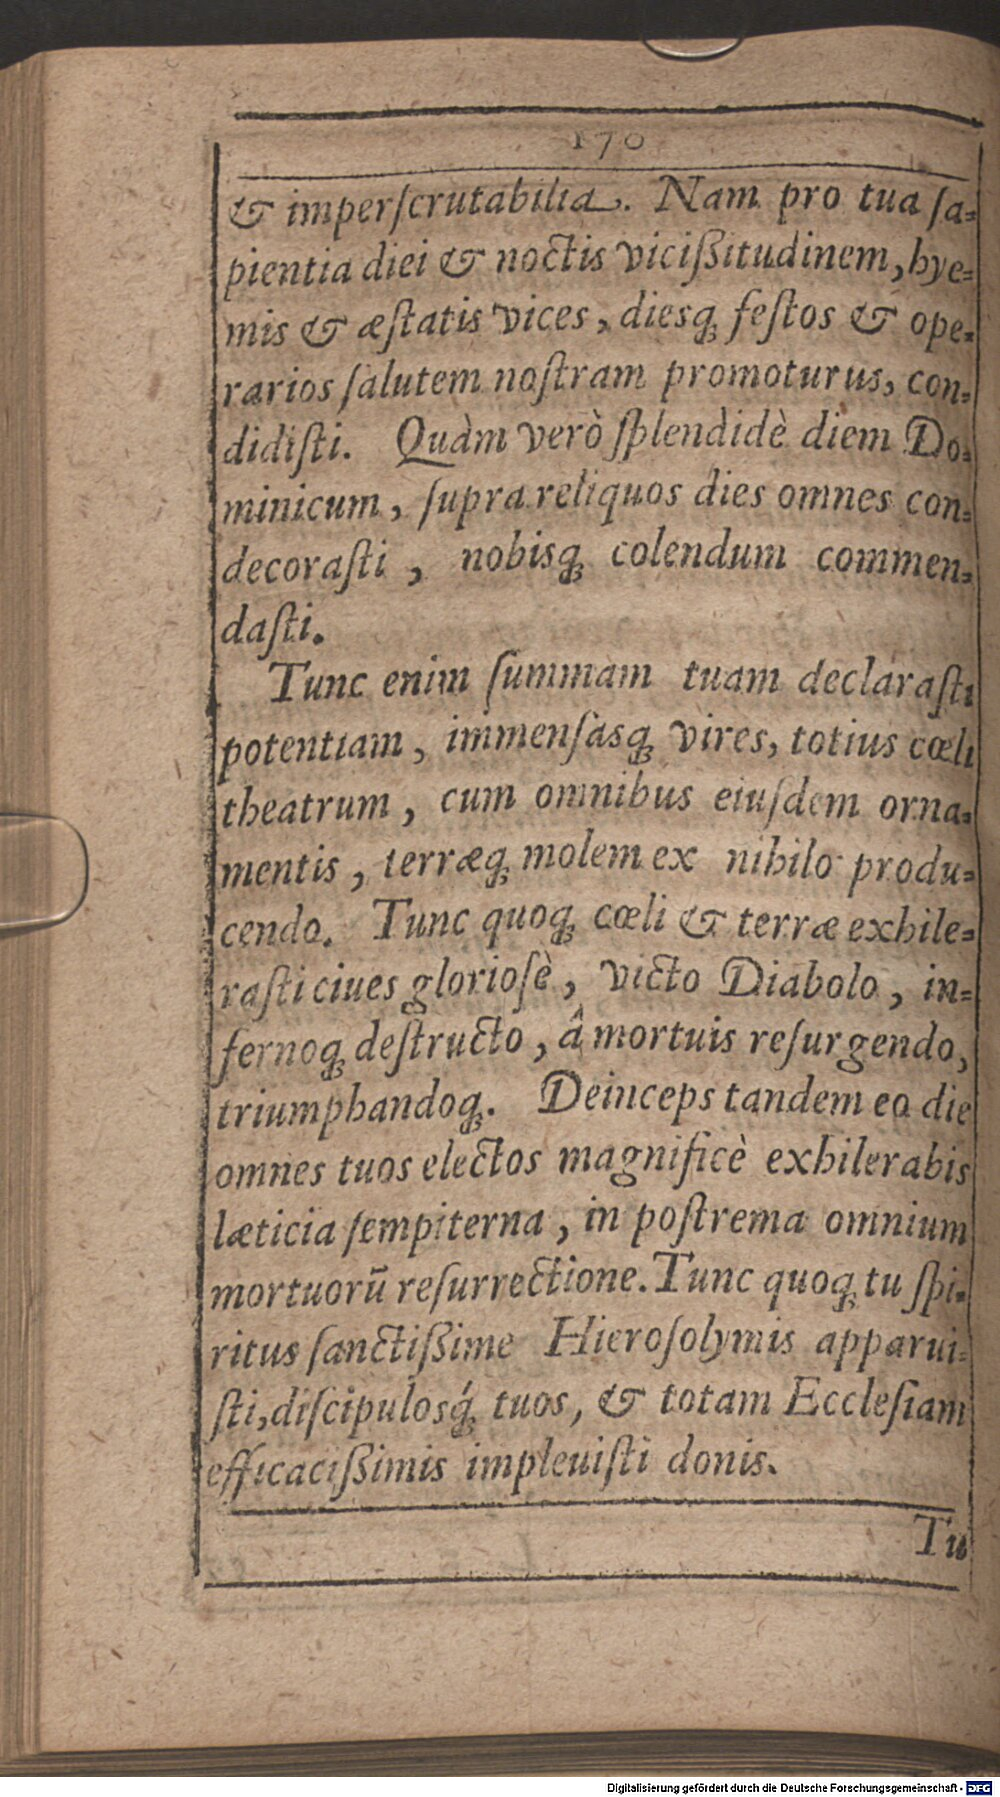 170
& imperſcrutabilia. Nam pro tua ſa-
pientia diei & noctis vicißitudinem, hye-
mis & æſtatis vices, diesq; feſtos & ope-
rarios ſalutem noſtram promoturus, con-
didiſti. Quàm verò ſplendidè diem Do-
minicum, ſupra reliquos dies omnes con-
decoraſti, nobisq; colendum commen-
daſti.
Tunc enim ſummam tuam declaraſti
potentiam, immenſasq; vires, totius cœli
theatrum, cum omnibus eiuſdem orna-
mentis, terræq; molem ex nihilo produ-
cendo. Tunc quoq; cœli & terræ exhile-
raſti ciues glorioſè, victo Diabolo, in-
fernoq; deſtructo, â mortuis reſurgendo,
triumphandoq;. Deinceps tandem eo die
omnes tuos electos magnificè exhilerabis
læticia ſempiterna, in poſtrema omnium
mortuorū reſurrectione. Tunc quoq; tu ſpi-
ritus ſanctißime Hieroſolymis apparui-
ſti, diſcipulosq́; tuos, & totam Eccleſiam
efficacißimis impleuiſti donis.
Tu
Digitalisierung gefördert durch die Deutsche Forschungsgemeinschaft - DFG